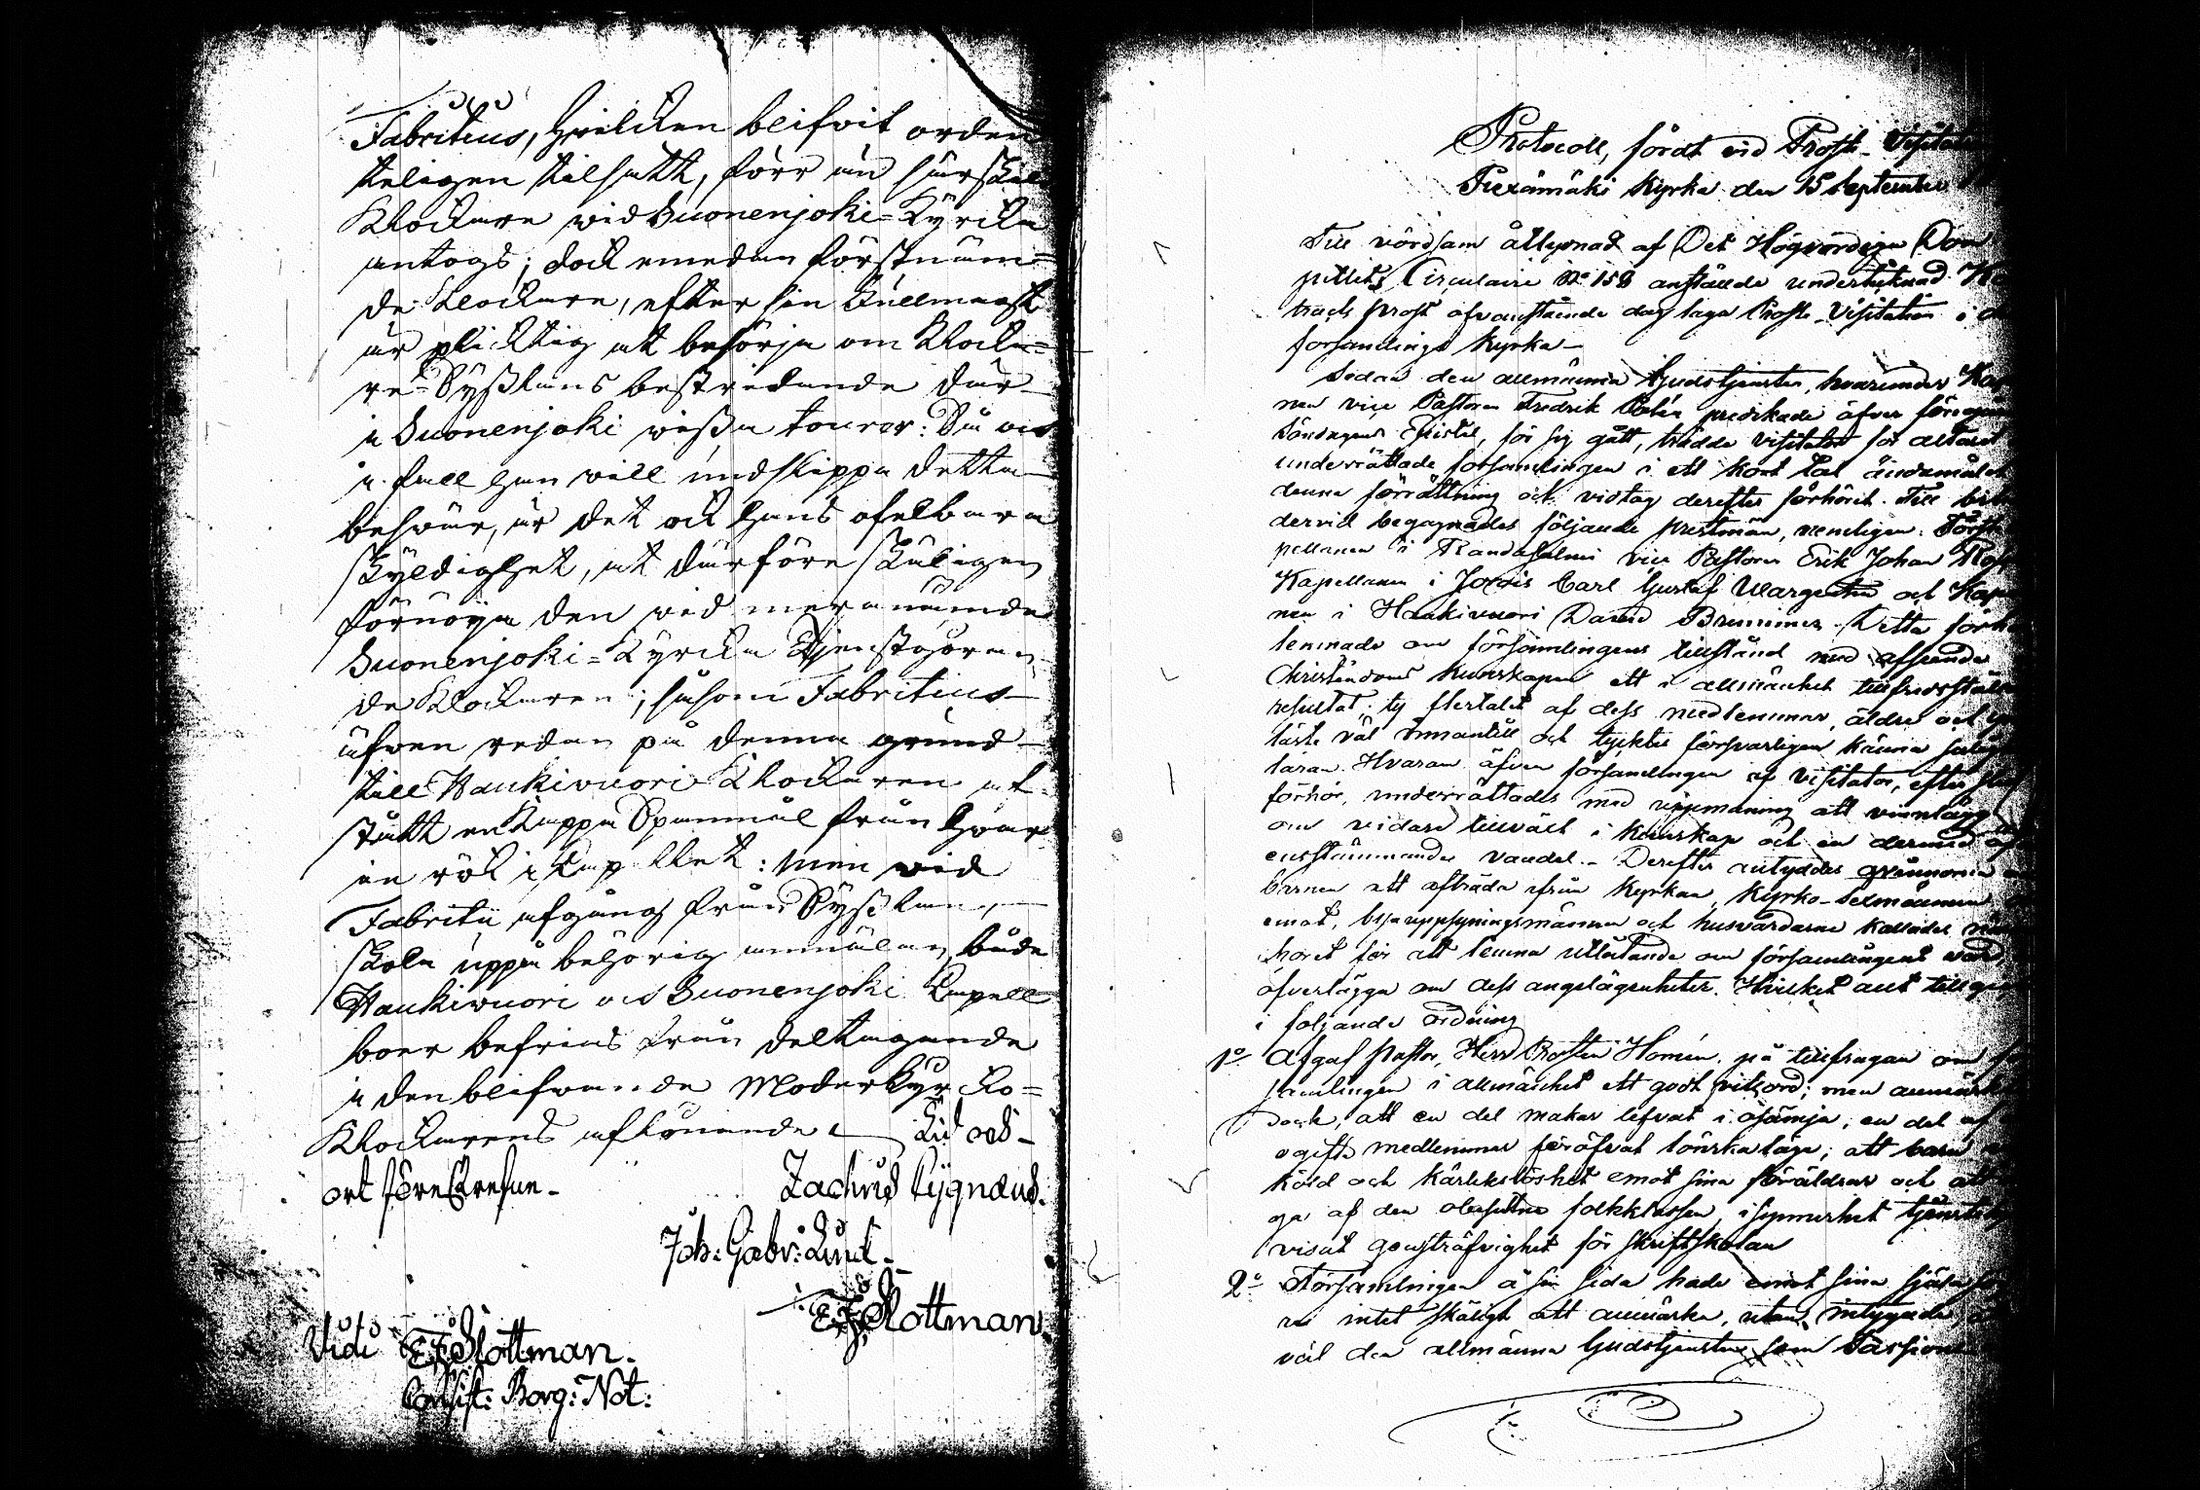 Fabritius, hvilcken blifvit orden
teligen tilsatt, förr än särskild
Klockare wid Suonenjoki=Kyrcka
antogs; dock emedan förstnäm=
de Klockare, efter sin Fullmagt
är plicktig at besörja om Klocka=
re=Sysslans bestridande där
i Suonenjoki wissa tourer: Så ock
i fall han will undslippa detta
beswär, är det ock hans ofelbara
skyldighet, at därföre skäligen
förnöya den wid meranämnde
Suonenjoki=Kyrcka tjenstgöran
de Klockaren; såsom Fabritius
äfwen redan på denna grund
till Haukivuori Klockaren af
stått en Kappa Spanmål från hwar
en rök i Kapellet: men wid
Fabritii afgång från Sysslan,
skola uppå behörig anmälan, både
Haukiwuori och Suonenjoki Kapell
boer befrias från deltagande
i den blifwande Moderkyrcko=
Klockarens aflönande Tid och
ort föreskrefne.
Zachris Cygnæus.
Joh: Gabr: Lind
E.J. Rottman
Vidi E.J. Rottman.
Consist: Borg: Not:
Protocoll, fördt vid Prosts-Visitation
Piexämäki Kyrka den 15 September
Till vördsam åtlydnad af Det Högvördiga Dom
pitlets Circulaire No 158 anställde undertecknad
tracts prost ofvanstående dag laga Prosts-Visitation i
församlings Kyrka
Sedan den allmänna Gudstjensten, hvarunder Kap
nen vice Pastoren Fredrik predikade öfver
Söndagens Epistel, för sig gått, trädde Visitator för altaret
underrättade församlingen i ett kort tal ändamålet
denna förrättning och vidtog derefter förhöret. Till
dervid begagnades följande prestmän, nemligen:
pellanen i Randasalmi vice Pastoren Erik Johan
Kapellanen i Jorois Carl Gustaf Wargentin och Kap
nen i Haukivuori David Brunnner. Detta förhör
lemnade om församlingens tillstånd med afseende
Christendoms kunskapen ett i allmänhet tillfredsställ
resultat; ty flertalet af dess medlemmar, äldre och
läste väl innantill och tycktes försvarligen känna
läran. Hvarom äfven församlingen af Visitator, efter
förhör, underrättades med uppmaning att vinnlägga
om vidare tillväxt i kunskap och en dermed
enstämmande vandel. Derefter antyddes qvinnorna
barnen att afträda ifrån Kyrkan, Kyrko-Sexmännen
emot, byauppsyningsmännen och husvärdarne kallades
koret för att lemna utlåtande om församlingens vård,
öfverlägga om dess angelägenheter. Hvilket allt
i följande ordning
1o Afgaf Pastor, Herr Prosten Homén, på tillfrågan om
samlingen i allmänhet ett godt vitsord; men anmärkte
dock, att en del makar lefvat i osämja; en del af
ogifta medlemmar föröfvat lönskaläge; att barn
köld och kärlekslöshet emot sina föräldrar och att
ga af den obesuttna folkklassen, i synnerhet
visat gensträfvighet för Skriftskolan
2o Församlingen å sin sida hade emot sina
re intet skäligt att anmärka, utan intygade,
väl den allmänna Gudstjensten som